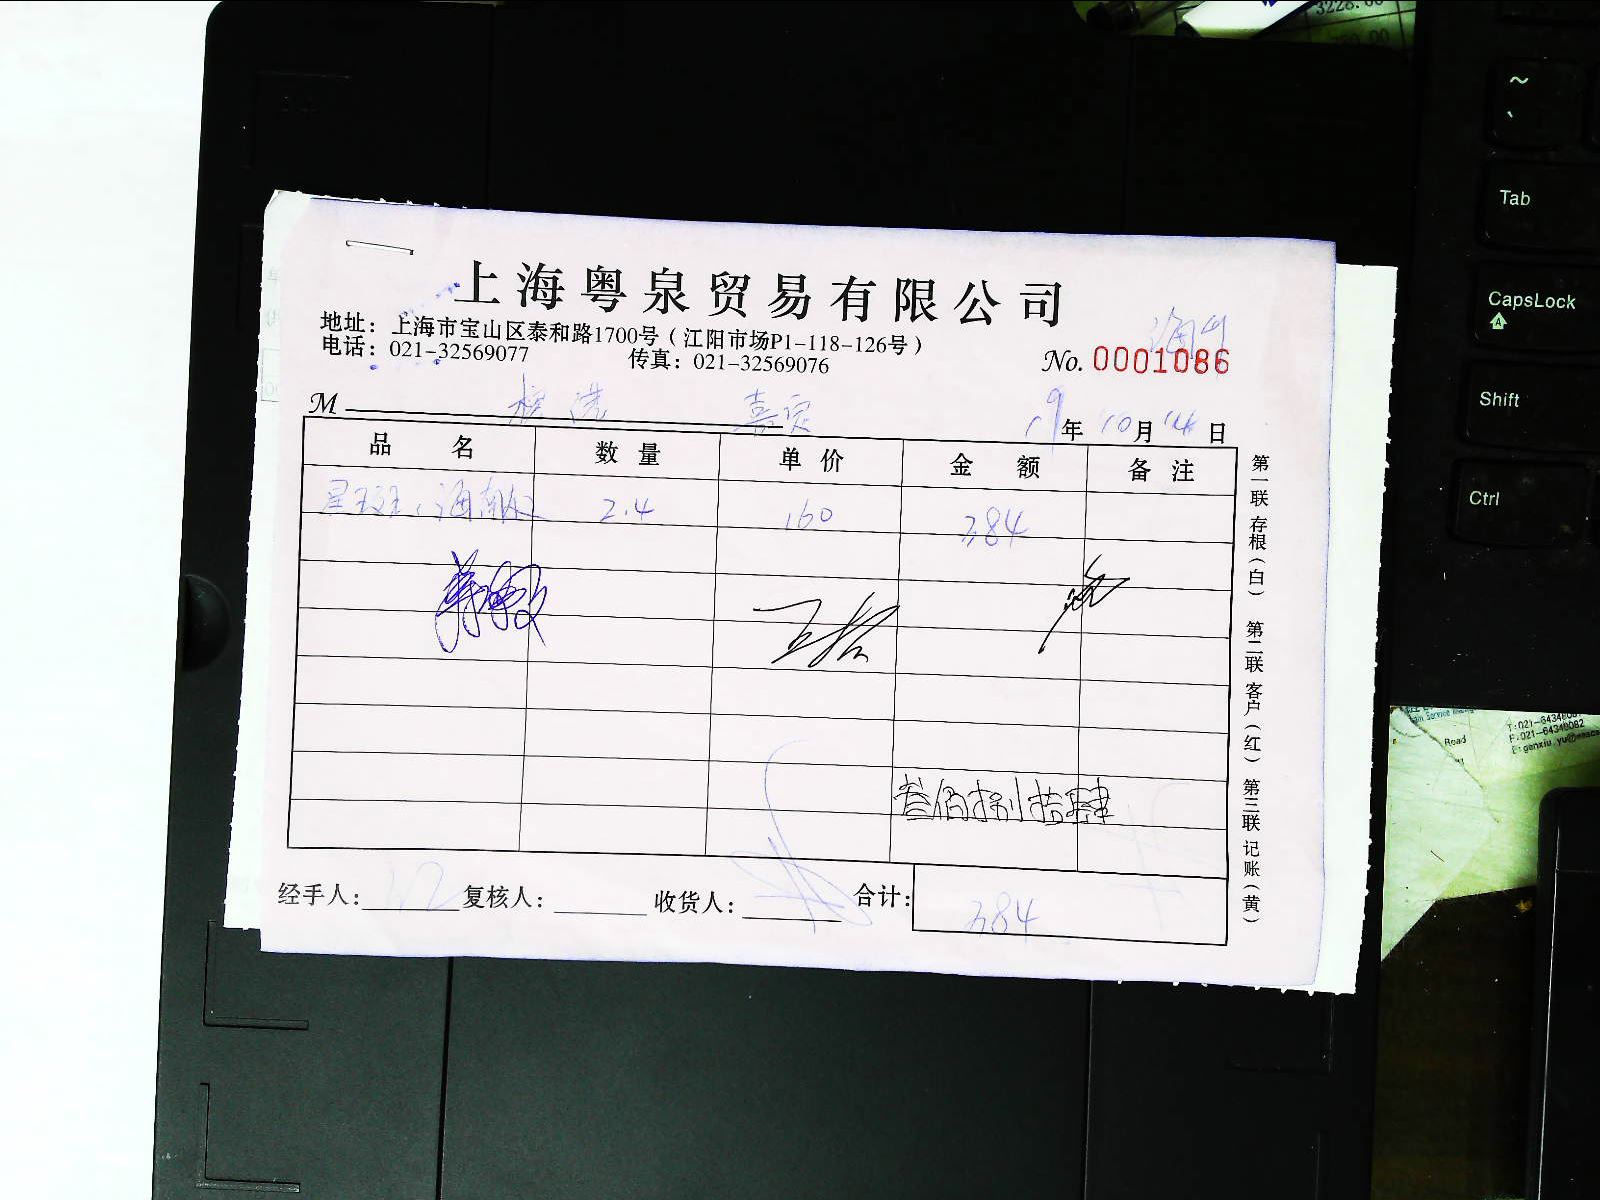 上海粤泉贸易有限公司
地址：上海市宝山区泰和路1700号（江阳市场P1-118-126号）
电话：021-32569077 传真：021-32569076
No. 0001086
M 嘉定 19年10月14日
品名 数量 单价 金额 备注
2.4 160 384
叁佰捌拾肆
经手人： 复核人： 收货人： 合计： 384
第一联 存根（白） 第二联 客户（红） 第三联 记账（黄）
~
、
Tab
CapsLock
A
Shift
Ctrl
3228.00
Road